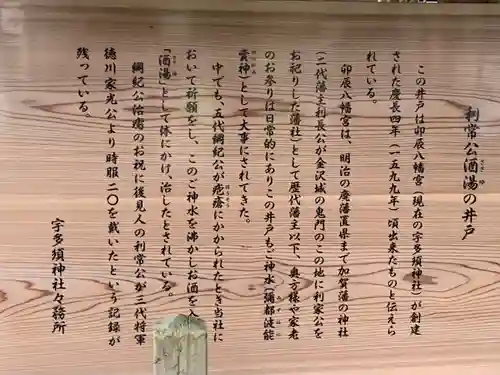 利常公酒湯の井戸
ささゆ
この井戸は卯辰八幡宮（現在の宇多須神社）が創建
された慶長四年（一五九九年）頃出来たものと伝えら
れている。
卯辰八幡宮は、明治の廃藩置県まで加賀藩の神社
（二代藩主利長公が金沢城の鬼門のこの地に利家公を
お祀りした藩社）として歴代藩主以下、奥方様や家老
のお参りは日常的にありこの井戸もご神水（彌都波能
賣神）として大事にされてきた。
中でも、五代綱紀公が疱瘡にかかられたとき当社に
ほうそう
おいて祈願をし、このご神水を沸かしお酒を入
「酒湯」として体にかけ、治したとされている。
綱紀公治癒のお祝に後見人の利常公が三代将軍
徳川家光公より時服二〇を戴いたという記録が
残っている。
宇多須神社々務所